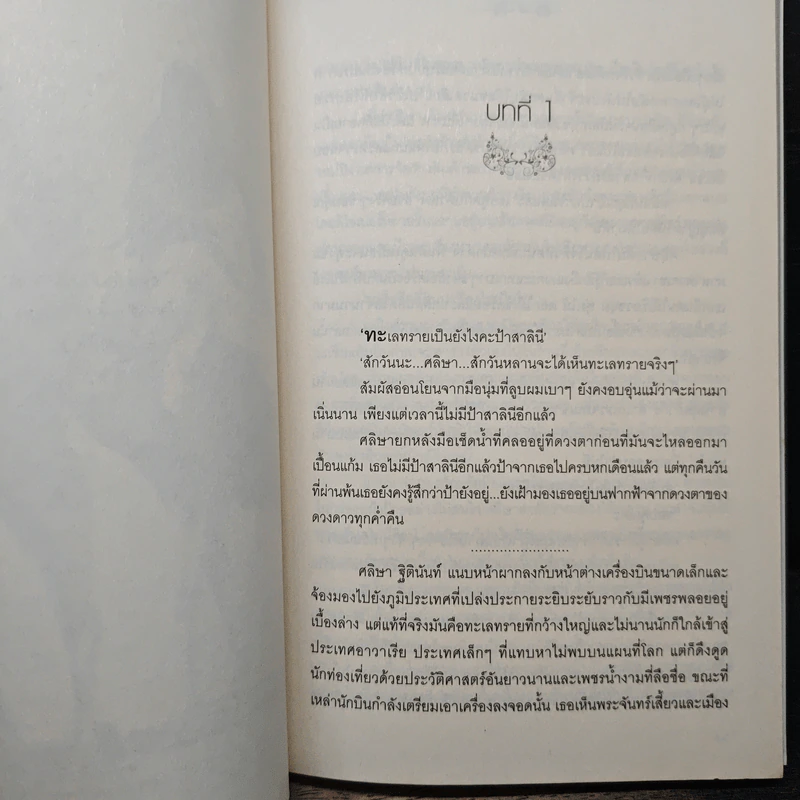 บทที่ 1
‘ทะเลทรายเป็นยังไงคะป้าสาลินี’
‘สักวันนะ...ศลิษา...สักวันหลานจะได้เห็นทะเลทรายจริงๆ’
สัมผัสอ่อนโยนจากมือนุ่มที่ลูบผมเบาๆ ยังคงอบอุ่นแม้ว่าจะผ่านมา
เนิ่นนาน เพียงแต่เวลานี้ไม่มีป้าสาลินีอีกแล้ว
ศลิษายกหลังมือเช็ดน้ำที่คลออยู่ที่ดวงตาก่อนที่มันจะไหลออกมา
เปื้อนแก้ม เธอไม่มีป้าสาลินีอีกแล้วป้าจากเธอไปครบหกเดือนแล้ว แต่ทุกคืนวัน
ที่ผ่านพ้นเธอยังคงรู้สึกว่าป้ายังอยู่...ยังเฝ้ามองเธออยู่บนฟากฟ้าจากดวงตาของ
ดวงดาวทุกค่ำคืน
........................
ศลิษา ฐิตินันท์ แนบหน้าผากลงกับหน้าต่างเครื่องบินขนาดเล็กและ
จ้องมองไปยังภูมิประเทศที่เปล่งประกายระยิบระยับราวกับมีเพชรพลอยอยู่
เบื้องล่าง แต่แท้ที่จริงมันคือทะเลทรายที่กว้างใหญ่และไม่นานนักก็ใกล้เข้าสู่
ประเทศอาวาเรีย ประเทศเล็กๆ ที่แทบหาไม่พบบนแผนที่โลก แต่ก็ดึงดูด
นักท่องเที่ยวด้วยประวัติศาสตร์อันยาวนานและเพชรน้ำงามที่ลือชื่อ ขณะที่
เหล่านักบินกำลังเตรียมเอาเครื่องลงจอดนั้น เธอเห็นพระจันทร์เสี้ยวและเมือง